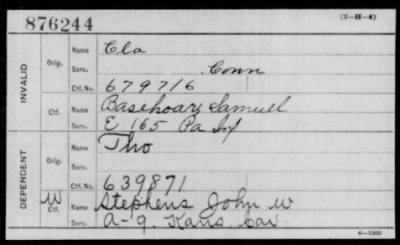 876244
(3-H-4)
INVALID
Orig.
Name Clo
Serv. Conn
Ctf. No. 679716
Ctf.
Name Basehoar, Samuel
Serv. E 165 Pa Inf
DEPENDENT
Orig.
Name Tho
Serv.
Ctf. No. 639871
W
Ctf.
Name Stephens John W
Serv. A-9. Kans Cav